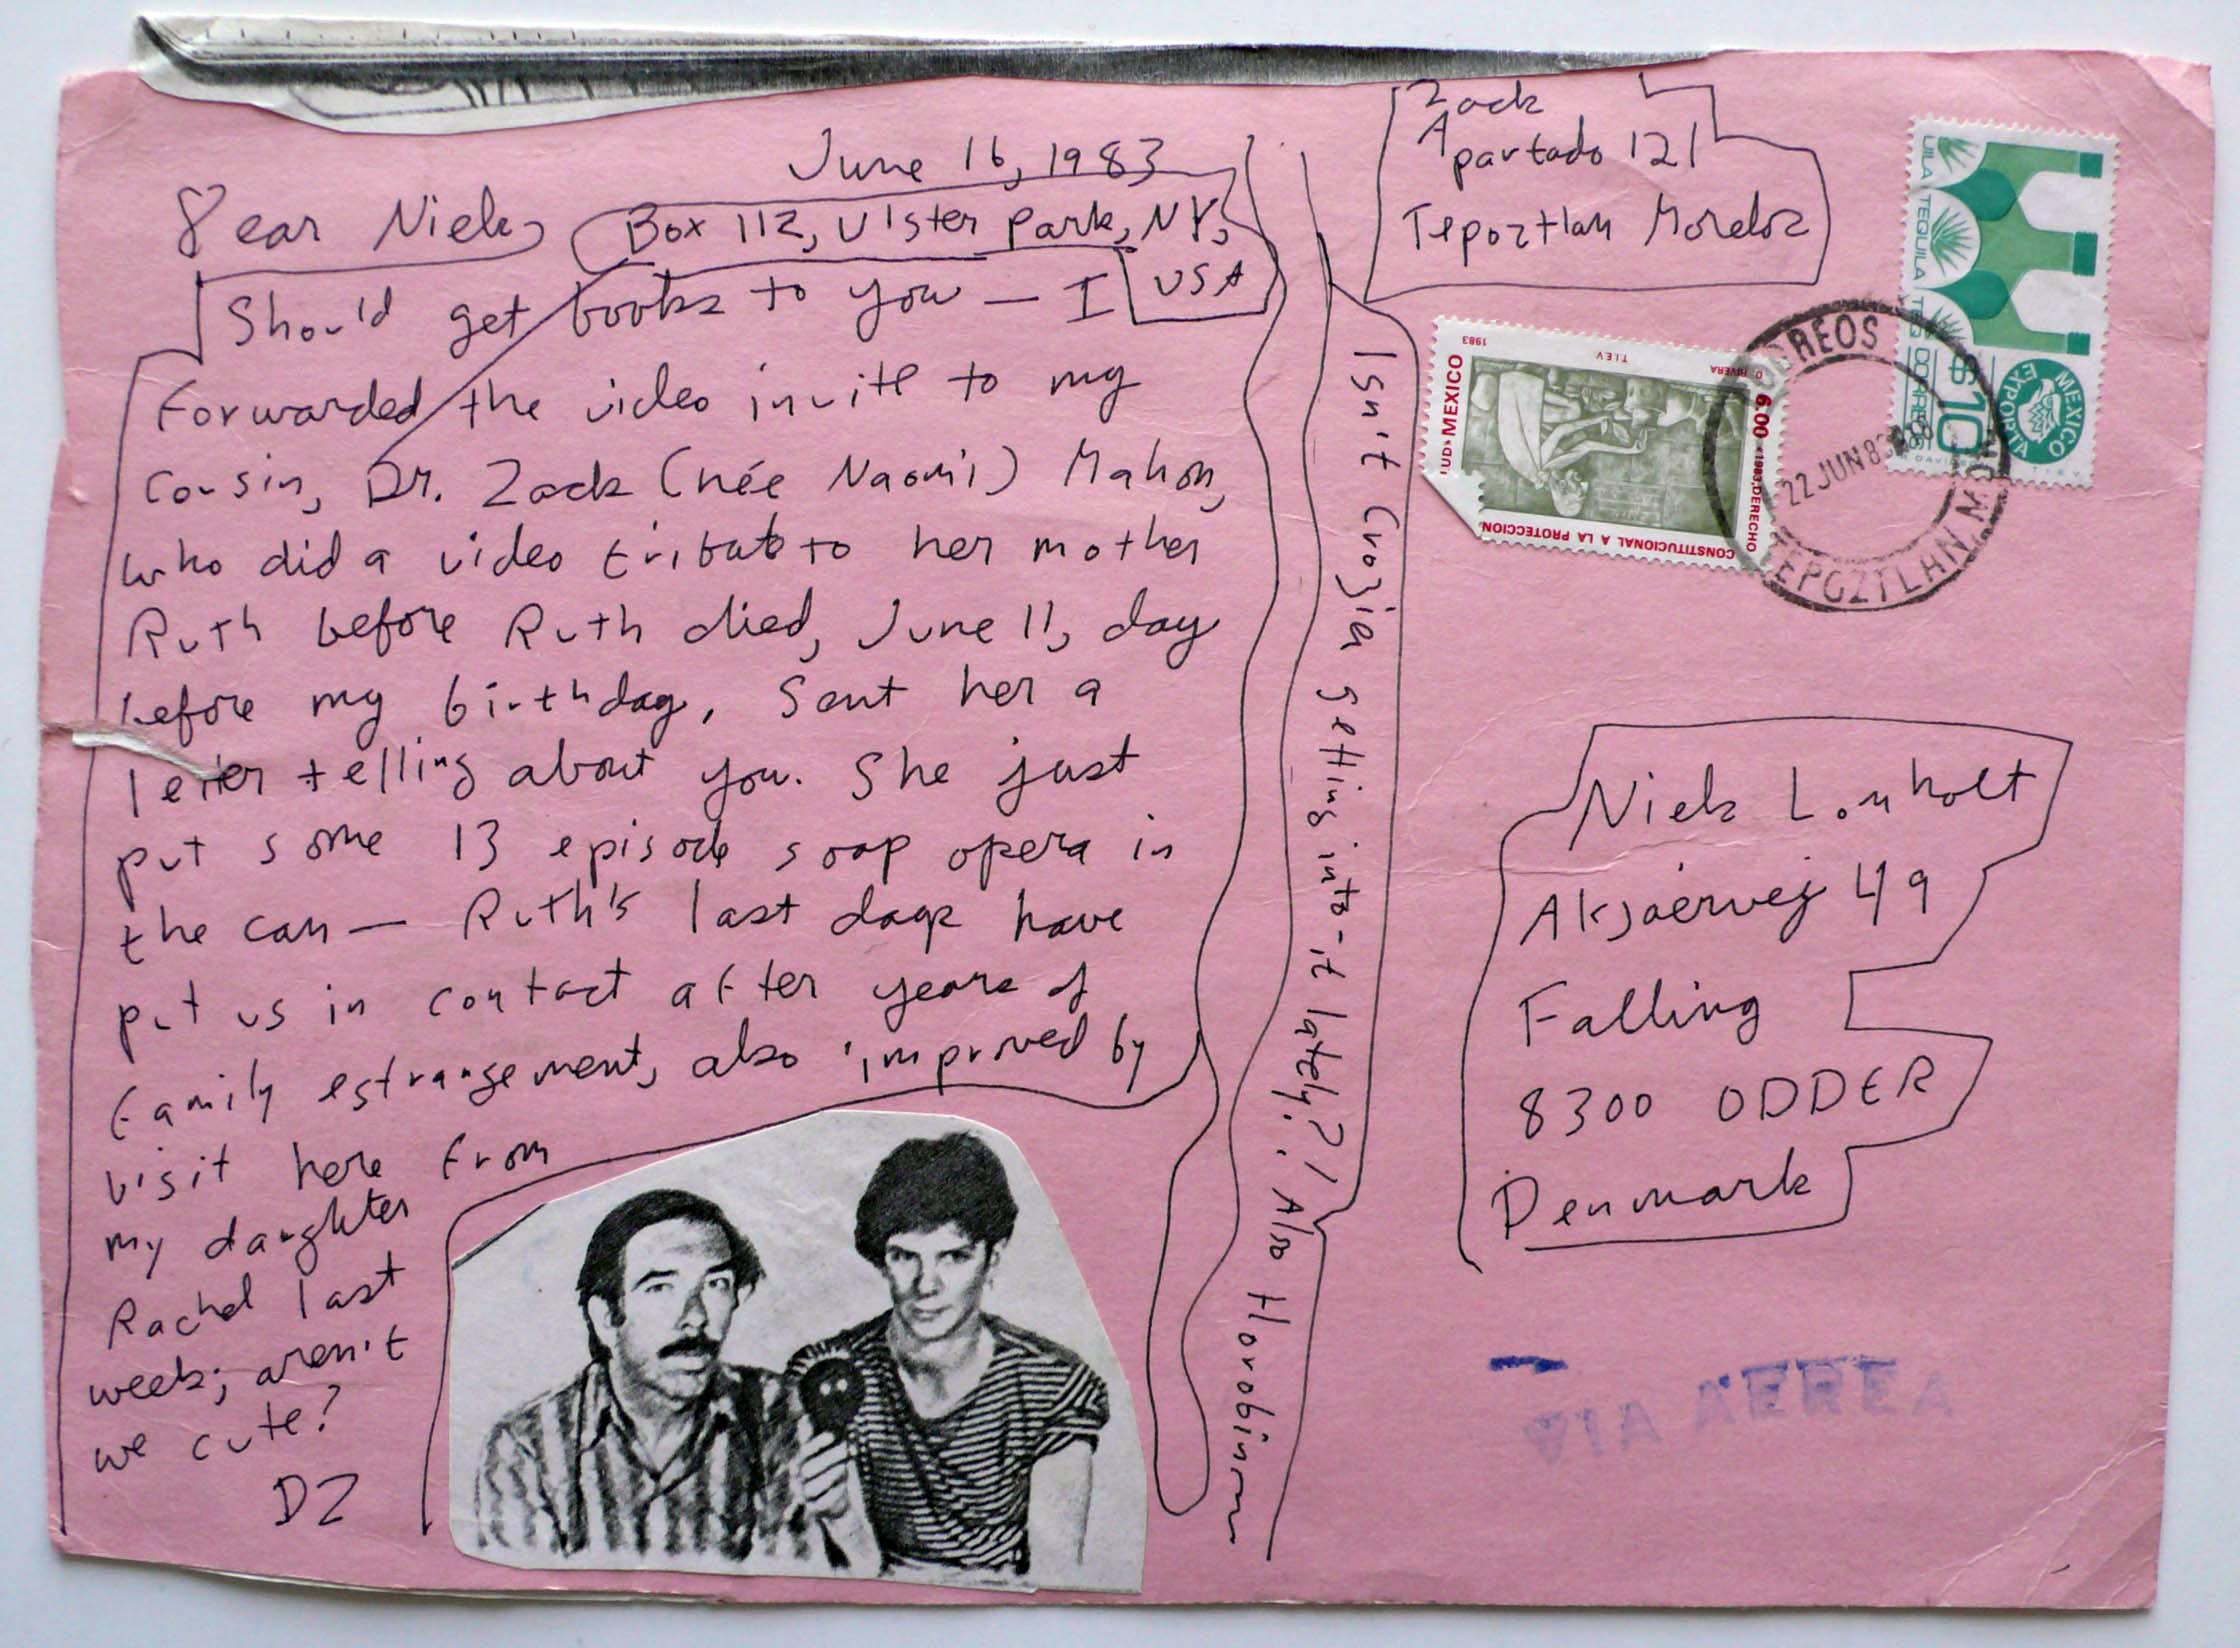 June 16, 1983
Dear Niels,
Box 112, Ulster Park, NY,
USA
Should get books to you — I
forwarded the video invite to my
cousin, Dr. Zack (née Naomi) Mahon,
who did a video tribute to her mother
Ruth before Ruth died, June 11, day
before my birthday, Sent her a
letter telling about you. She just
put some 13 episode soap opera in
the can — Ruth's last days have
put us in contact after years of
family estrangement, also improved by
visit here from
my daughter
Rachel last
week; aren't
we cute?
DZ
Isn't Crozia getting into-it lately?! Also Horobin
Zack
Apartado 121
Tepoztlan Morelos
Niels Lomholt
Aksjaervej 49
Falling
8300 ODDER
Denmark
VIA AEREA
TEQUILA TEQUILA
CORREOS
$10
MEXICO EXPORTA
MEXICO
1983
T.I.E.V.
D. RIVERA
6.00 •1983,DERECHO
CONSTITUCIONAL A LA PROTECCION
CORREOS
22 JUN 83
TEPOZTLAN, MOR